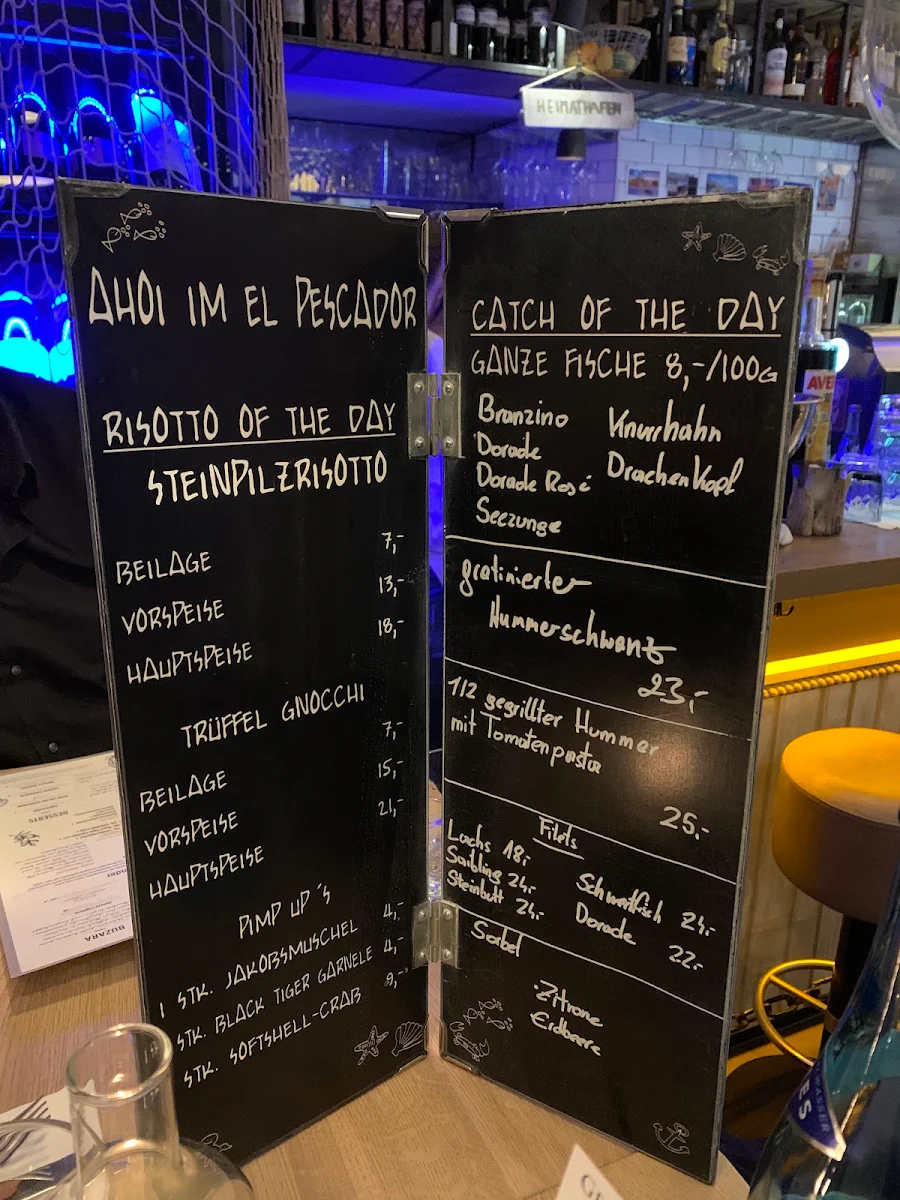 HEIMATHAFEN
AHOI IM EL PESCADOR
RISOTTO OF THE DAY
STEINPILZRISOTTO
BEILAGE 7,-
VORSPEISE 13,-
HAUPTSPEISE 18,-
TRÜFFEL GNOCCHI
BEILAGE 7,-
VORSPEISE 15,-
HAUPTSPEISE 21,-
PIMP UP´S
1 STK. JAKOBSMUSCHEL 4,-
STK. BLACK TIGER GARNELE 4,-
STK. SOFTSHELL-CRAB 9,-
CATCH OF THE DAY
GANZE FISCHE 8,-/100G
Branzino Knurrhahn
Dorade Drachenkopf
Dorade Rosé
Seezunge
gratinierter
Hummerschwanz
23,-
1/2 gegrillter Hummer
mit Tomatenpasta
25.-
Filets
Lachs 18,-
Saibling 24,- Schwertfisch 24,-
Steinbutt 24,- Dorade 22,-
Sorbet
Zitrone
Erdbeere
DESSERTS
BUZARA
AVER